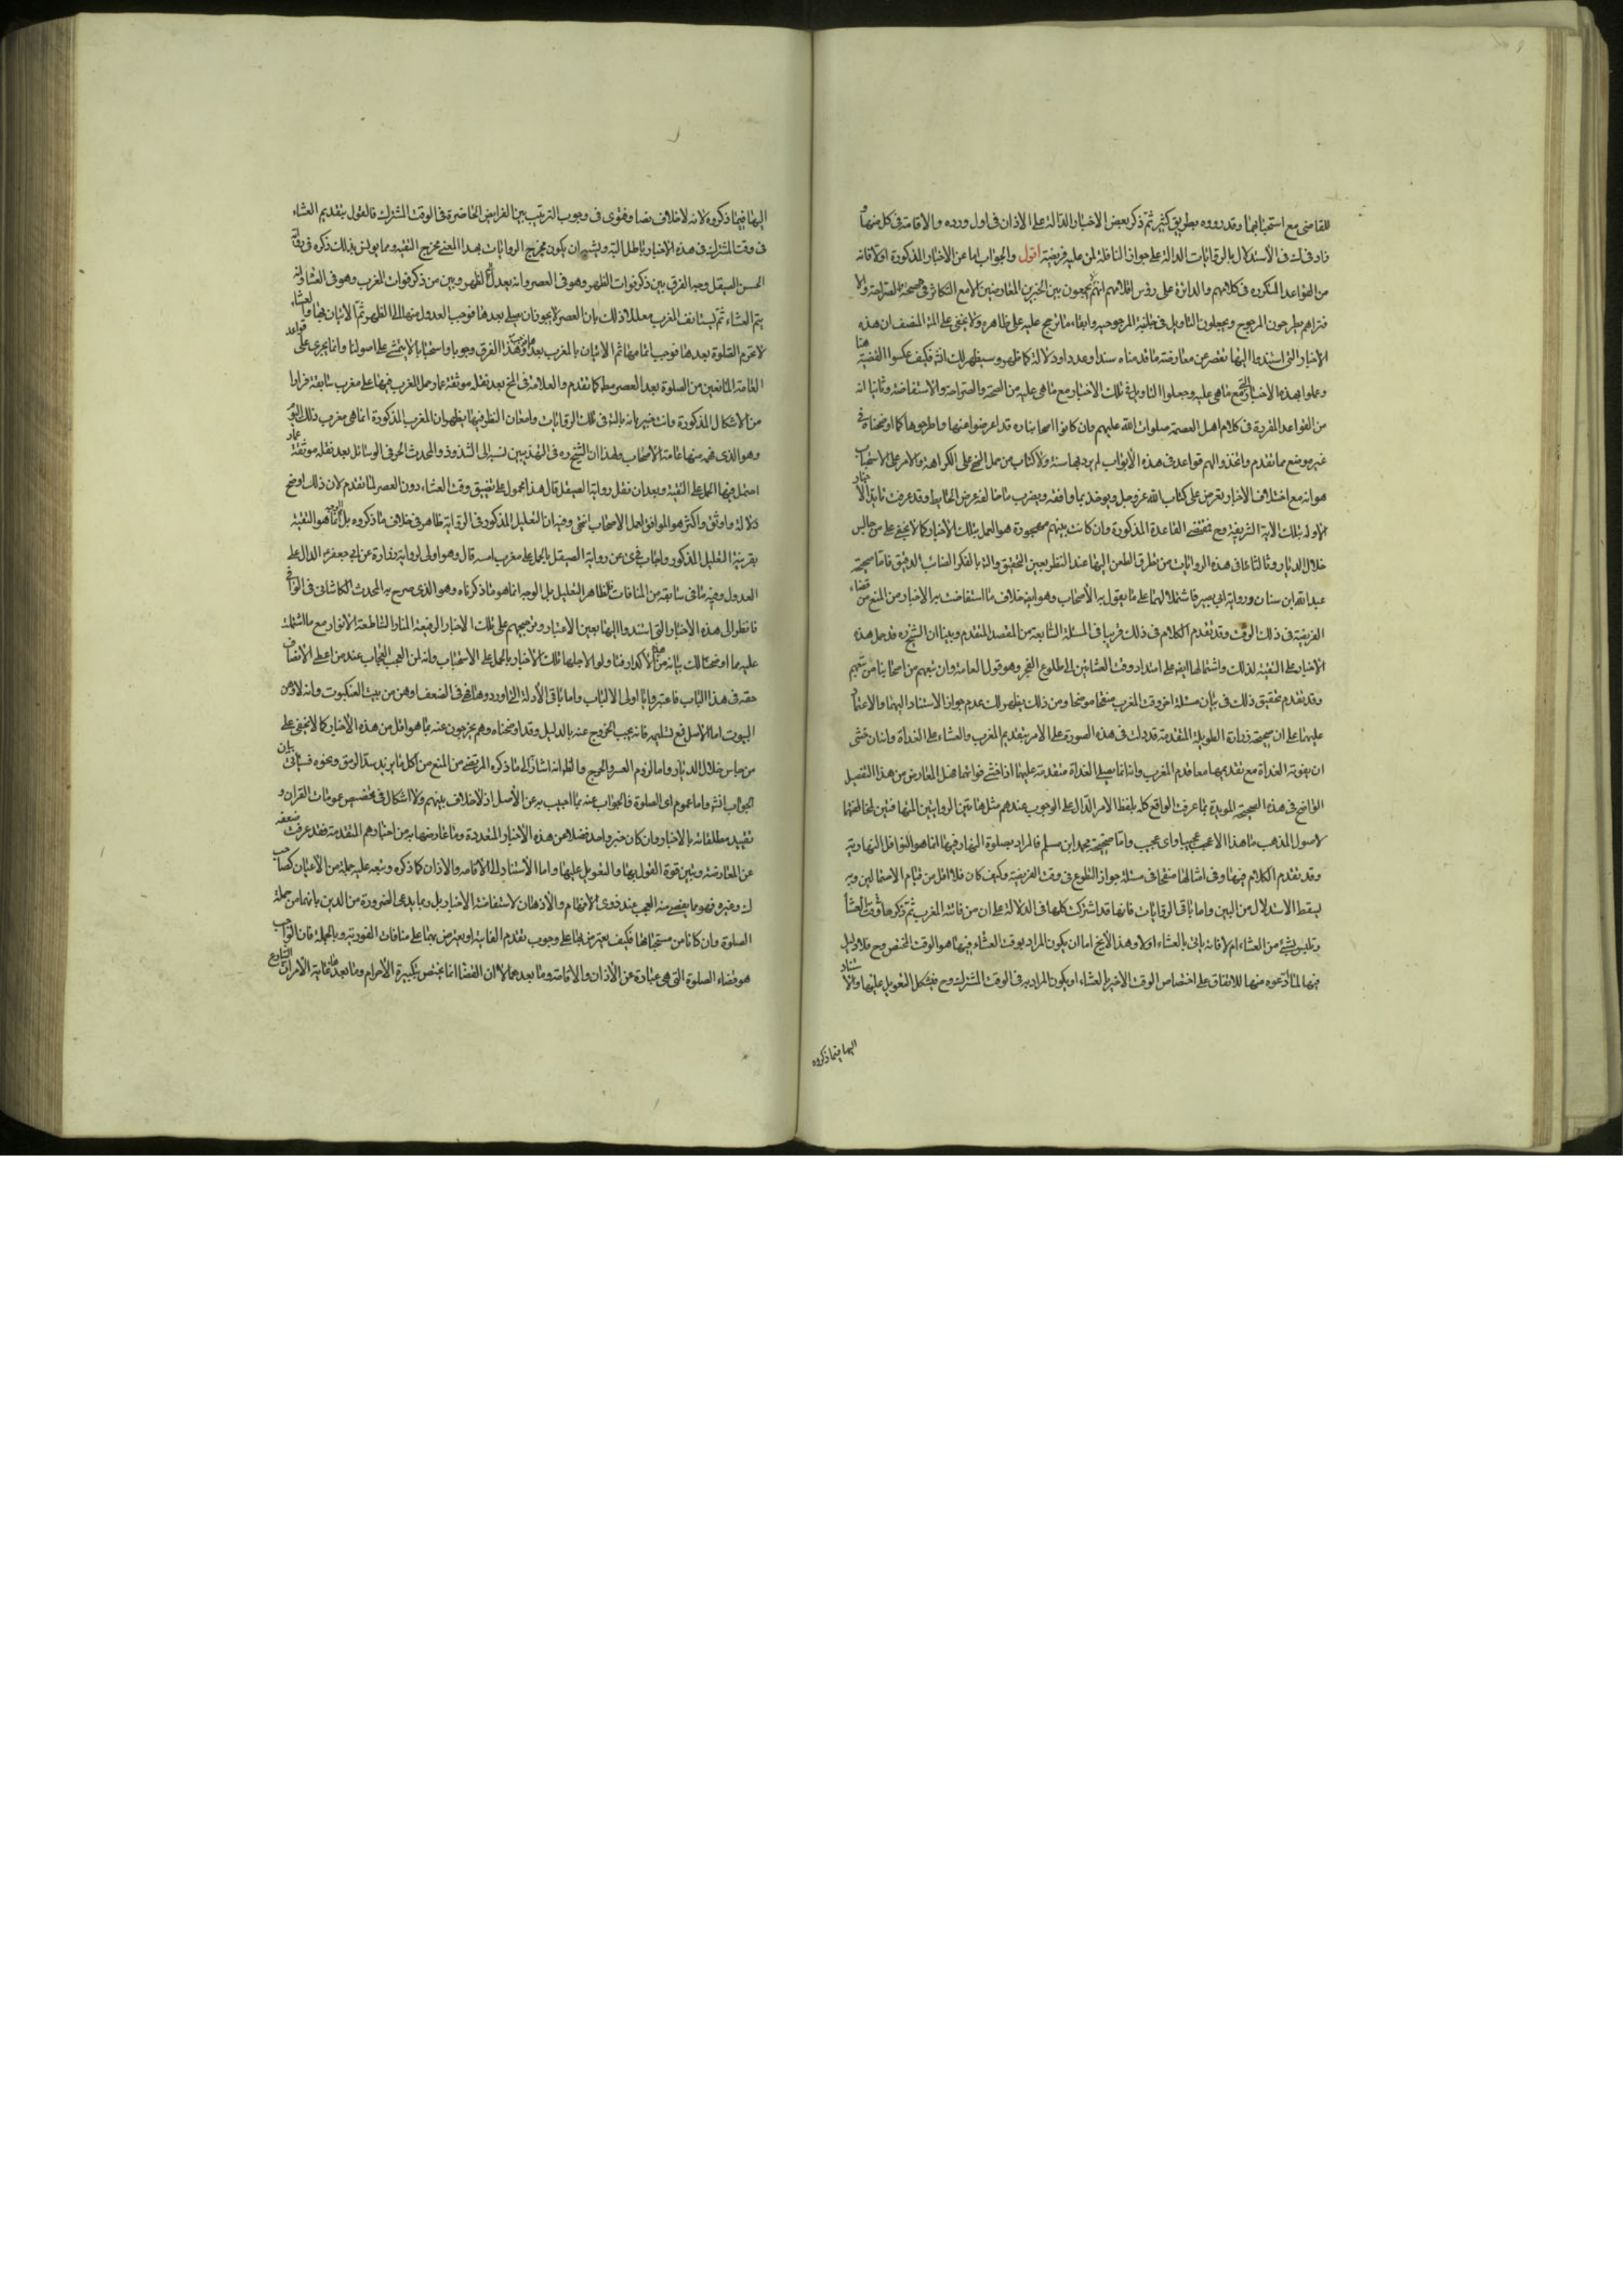 للقاضى مع استحبابهما وقد رووه بطريق كثير ثم ذكر بعض الاخبار الدالة على الاذان فى اول ورده والاقامة فى كل منها
زاد فى له فى الأستدلال بالروايات الدالة على جواز النافلة لمن عليه فريضة اقول والجواب اما عن الاخبار المذكورة اولا فانه
من القواعد المكررة فى كلامهم والدائرة على رؤس اقلامهم انهم يجمعون بين الخبرين المتعارضين الا مع التكاثر فى صحة الصراحة والا
فتراهم يطرحون المرجوح ويجعلون التأويل فى المرجوحية وابقاء ما ترجح عليه على ظاهره ولا يخفى على المنصف ان هذه
الاخبار التى استندوا اليها تقصر عن معارضة ما قدمناه سندا وعددا ودلالة كما ظهر وسيظهر لك انش فكيف عكسوا القضية هنا
وعملوا بهذه الاخبار مع ماهى عليه وجعلوا التاويل فى تلك الاخبار مع ماهى عليه من الصحة والصراحة والاستفاضة وثانيا انه
من القواعد المقررة فى كلام اهل العصمة صلوات الله عليهم وان كانوا اصحابنا ره قد اعرضوا عنها واطرحوها كما اوضحناه فى
غير موضع مما تقدم واتخذوا لهم قواعد فى هذه الأبواب لم يرد بها سنة ولا كتاب من حمل النهى على الكراهة والامر على الاستحباب
هو انه مع اختلاف الاخبار يعرض على كتاب الله عز وجل ويوخذ بما وافقه ويضرب ما خالفه عرض الحايط وقد عرفت تايد الاخبار
الاولة بتلك الاية الشريفة وح فمقتضى القاعدة المذكورة وان كانت بينهم مهجورة هو العمل بتلك الاخبار كما لا يخفى على من جاس
خلال الديار وثالثا عما فى هذه الروايات من تطرق الطعن اليها عند النظر بعين التحقيق والتأمل بالفكر الصائب الدقيق فاما صحيحة
عبد الله ابن سنان ورواية ابى بصير فاشتمالهما على ما يقول به الأصحاب وهو ايضا خلاف ما استفاضت به الاخبار من المنع من قضاء
الفريضة فى ذلك الوقت وقد تقدم الكلام فى ذلك قريبا فى المسئلة السابعة من المقصد المتقدم وبينا ان الشيخ ره قد حمل هذه
الاخبار على التقية لذلك واشتمالها ايضا على امتداد وقت العشائين الى طلوع الفجر وهو قول العامة وان تبعهم من اصحابنا من تبعهم
وقد تقدم تحقيق ذلك فى بيان مسئلة اخر وقت المغرب منقحا موضحا ومن ذلك يظهر لك عدم جواز الاستناد اليهما والاعتماد
عليهما على ان صحيحة زرارة الطويلة المتقدمة قد دلت فى هذه الصورة على الامر بتقديم المغرب والعشاء على الغداة وانه ان خشى
ان يفوته الغداة مع تقديمهما معا قدم المغرب وانه انما يصلى الغداة متقدمة عليهما اذا خشى فواتها فهل المعارض من هذا التفصيل
الواضح فى هذه الصحيحة المويدة بما عرفت الواقع كله بلفظ الامر الدال على الوجوب عندهم مثل هاتين الروايتين المتهافتين المخالفتين
لاصول المذهب ما هذا الا عجب عجيب واى عجيب واما صحيحة محمد ابن مسلم فالمراد بصلوة النهار فيها انما هو النوافل النهارية
وقد تقدم الكلام فيها وفى امثالها منقحا فى مسئلة جواز التطوع فى وقت الفريضة وكيف كان فلا اقل من قيام الاحتمالين وبه
يسقط الاستدلال من البين واما باقى الروايات فانها قد اشتركت كلها فى الدلالة على ان من فاتته المغرب ثم ذكرها وقت العشاء
وتلبس بشئ من العشاء ام لا فانه ياتى بالعشاء اولا وهذا لا يخ اما ان يكون المراد بوقت العشاء فيها هو الوقت المختص وح فلا دليل
فيها لما ادعوه منها للاتفاق على اختصاص الوقت الاخير بالعشاء او يكون المراد به فى الوقت المشترك وح فيشكل التعويل عليها والاستناد
اليها فيما ذكروه
اليها فيما ذكروه لانه لا خلاف نصا وفتوى فى وجوب الترتيب بين الفرايض الحاضرة فى الوقت المشترك فالقول بتقديم العشاء
فى وقت المشترك فى هذه الاخبار باطل البتة ويشبه ان يكون مخرج الروايات بهذا المعنى مخرج التقية ومما يونس بذلك ذكره فى رواية
الحسن الصيقل وجه الفرق بين ذكر فوات الظهر وهو فى العصر وانه يعدل الى الظهر وبين من ذكر فوات المغرب وهو فى العشاء وانه
يتم العشاء ثم يستانف المغرب معللا ذلك بان العصر لا يجوز ان يصلى بعدها فوجب العدول منها الى الظهر ثم الاتيان بها والعشاء
لا تحرم الصلوة بعدها فوجب اتمامها ثم الاتيان بالمغرب بعدها وهذا الفرق وجوبا واستحبابا لا يتمشى على اصولنا وانما يجرى على قواعد
العامة المانعين من الصلوة بعد العصر مط كما تقدم والعلامة فى المنتهى بعد نقله موثقة عمار حمل المغرب فيها على مغرب سابقة فرارا
من الاشكال المذكورة وانت خبير بانه بالتامل فى تلك الروايات وامعان النظر فيها يظهر ان المغرب المذكورة انما هى مغرب ذلك اليوم
وهو الذى فهمه منها عامة الاصحاب ولهذا ان الشيخ ره فى التهذيبين نسبه الى الشذوذ والمحدث الحر فى الوسائل بعد نقله موثقة عمار
احتمل فيها الحمل على التقية وبعد ان نقل رواية الصيقل قال هذا محمول على تضيق وقت العشاء دون العصر لما تقدم لان ذلك اوضح
دلالة واوثق واكثر وهو الموافق لعمل الاصحاب انتهى وفيه ان التعليل المذكور فى الرواية ظاهر فى خلاف ما ذكروه بل الوجه انما هو التقية
بقرينة التعليل المذكور واجاب فى خ عن رواية الصيقل بالحمل على مغرب امسه قال وهو اولى لرواية زرارة عن ابى جعفر ع الدال على
العدول وفيه ما فى سابقه من المنافات لظاهر التعليل بل الوجه انما هو ما ذكرناه وهو الذى صرح به المحدث الكاشانى فى الوافى
فانظر الى هذه الاخبار التى استندوا اليها بعين الاعتبار وترجيحهم على تلك الاخبار الرفيعة المنار الساطعة الانوار مع ما اشتملت
عليه مما اوضحنا لك بيانه من الاكدار فيا ولوا لاجلها تلك الاخبار بالحمل على الاستحباب وانه لمن العجب العجاب عند من اعطى الانصاف
حقه فى هذا الباب فاعتبروا يا اولى الالباب واما باقى الأدلة التى اوردوها فهى فى الضعف اوهن من بيت العنكبوت وانه لاوهن
البيوت اما الاصل فمع تسليمه فانه يجب الخروج عنه بالدليل وقد اوضحناه وهم يخرجون عنه بما هو اقل من هذه الأخبار كما لا يخفى على
من جاس خلال الديار واما لزوم العسر والحرج فالظ انه اشارة الى ما ذكره المرتضى من المنع من اكل ما يزيد سد الرمق ونحوه فسياتى بيان
الجواب انش واما عموم اى الصلوة فالجواب عنه بما اجيب به عن الأصل اذ لا خلاف بينهم ولا اشكال فى تخصيص عمومات القران و
تقييد مطلقاته بالاخبار وان كان خبر واحد فضلا من هذه الأخبار المتعددة وما عارضها به من اخبارهم المتقدمة فقد عرفت ضعفه
عن المعارضة وتبين قوة القول بها والتعويل عليها واما الأستناد الى الاقامة والاذان كما ذكره وتبعه عليه جملة من الأعيان كصاحب
ك وغيره فهو مما يقضى منه العجب عند ذوى الأفهام والأذهان لاستفاضة الاخبار بل ربما يدعى الضرورة من الدين بانهما من جملة
الصلوة وان كانا من مستحباتها فكيف يعترض بهما على وجوب تقديم الفائتة او يعترض بهما على منافات الفورية وبالجملة فان الواجب
هو قضاء الصلوة التى هى عبادة عن الأذان والأقامة وما بعدهما لا ان القضاء انما يختص بتكبيرة الأحرام وما بعدها غاية الأمر ان الشارع